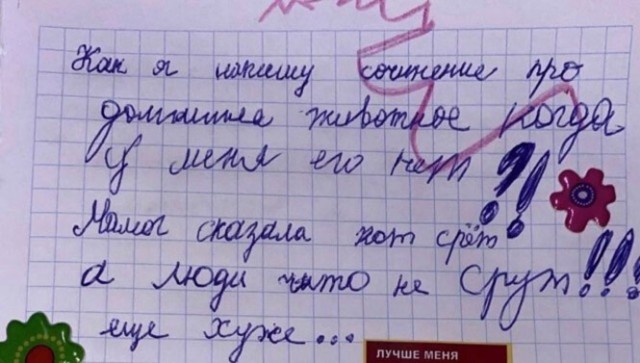 Как я напишу сочинение про
домашнеа животное когда
У меня его нет?!
Мамог сказала кот срёт
а люди чьто не срут!!!
еще хуже...
ЛУЧШЕ МЕНЯ